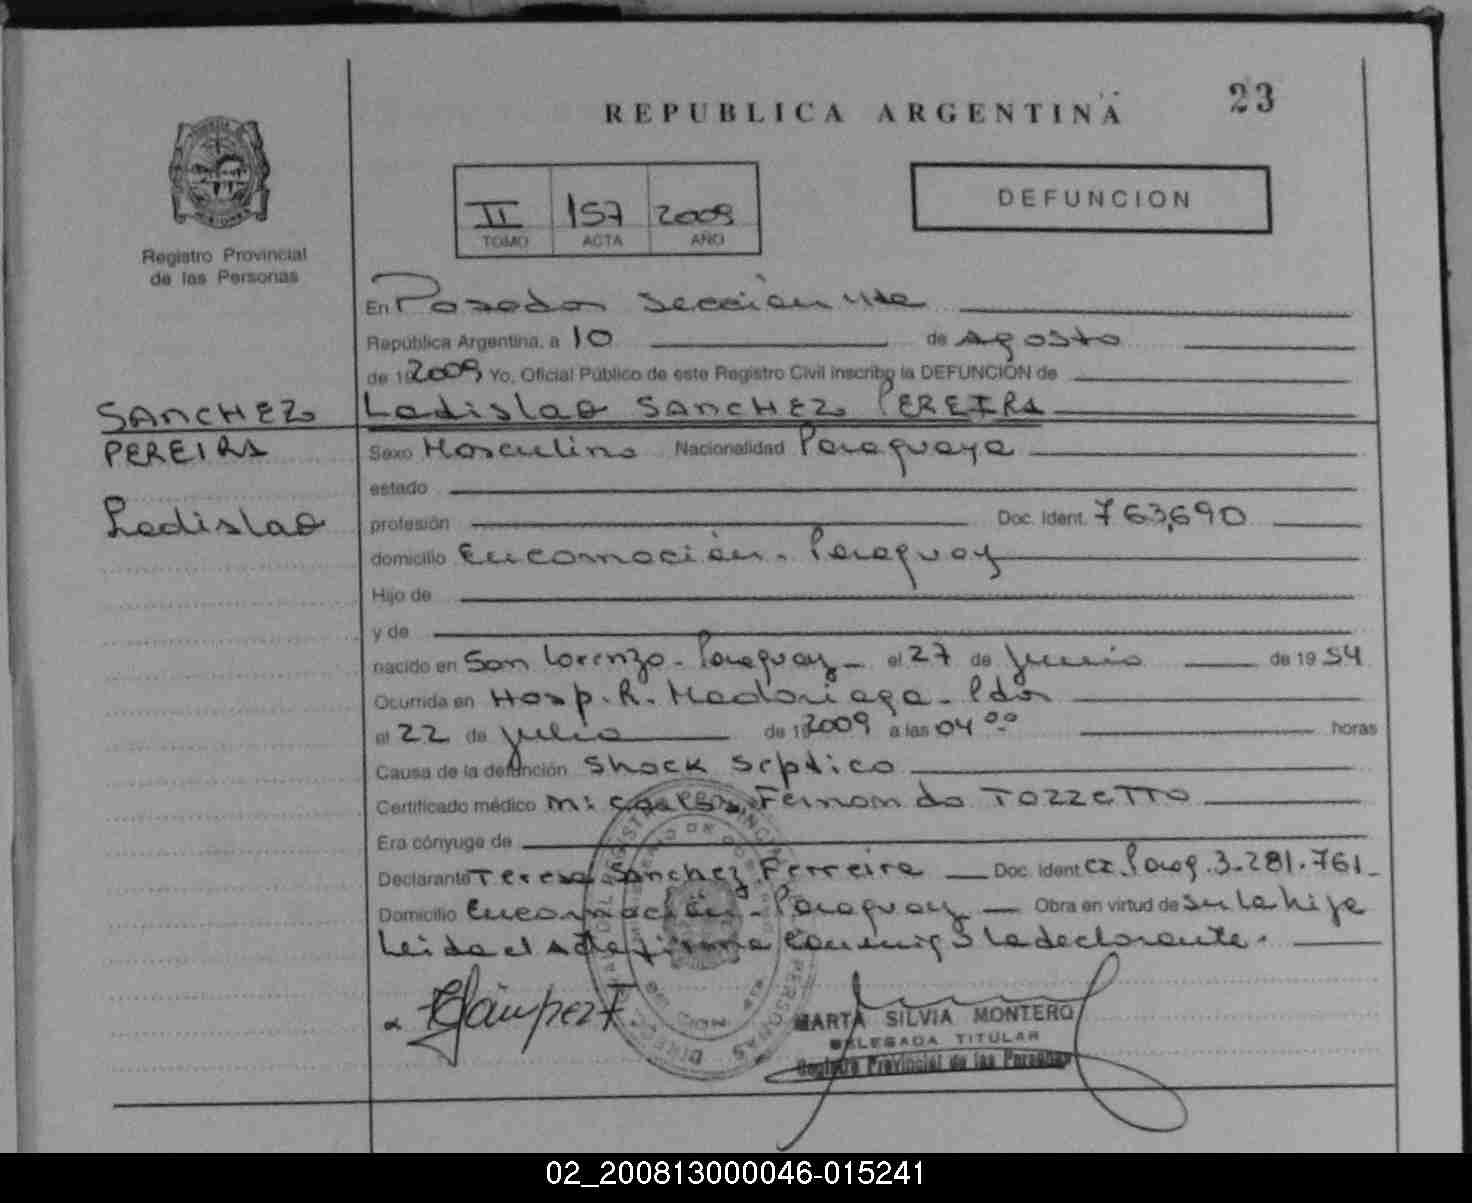 23
REPUBLICA ARGENTINA
Registro Provincial
de las Personas
II 157 2009
TOMO ACTA AÑO
DEFUNCION
En Posadas sección 1ra
República Argentina, a 10 de Agosto
de 19 2009 Yo, Oficial Público de este Registro Civil inscribo la DEFUNCIÓN de
Ladislao SANCHEZ PEREIRA
SANCHEZ
PEREIRA
Ladislao
Sexo Masculino Nacionalidad Paraguaya
estado
profesión Doc. Ident. 763,690
domicilio Encarnación - Paraguay
Hijo de
y de
nacido en San Lorenzo - Paraguay - el 27 de Junio de 19 54
Ocurrida en Hosp. R. Madariaga - Pdas
el 22 de julio de 19 2009 a las 04 00 horas
Causa de la defunción Shock Septico
Certificado médico Fernando TOZZETTO
Era cónyuge de
Declarante Teresa Sanchez Ferreira Doc. Ident. CI. Parag. 3.281.761
Domicilio Encarnación - Paraguay Obra en virtud de su la hija
Leida el Acta firma conmigo la declarante.
MARTA SILVIA MONTERO
DELEGADA TITULAR
Registro Provincial de las Personas
02_200813000046-015241